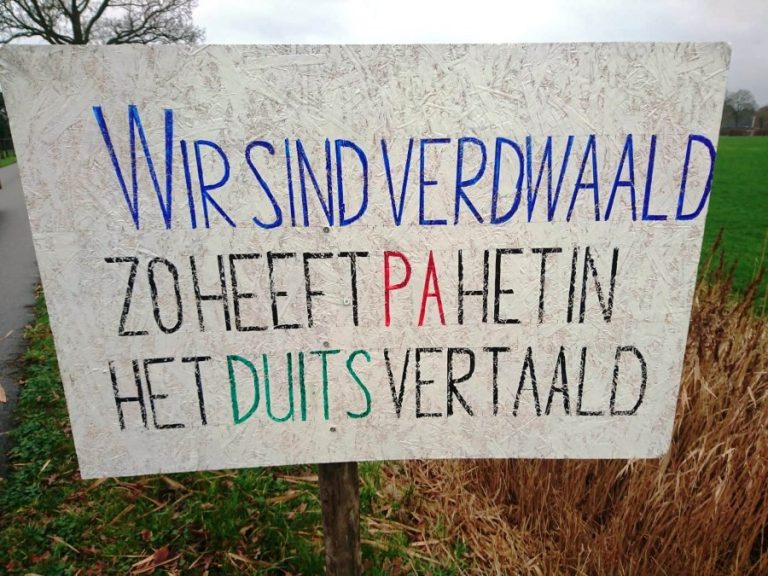 WIR SIND VERDWAALD
ZO HEEFT PA HET IN
HET DUITS VERTAALD